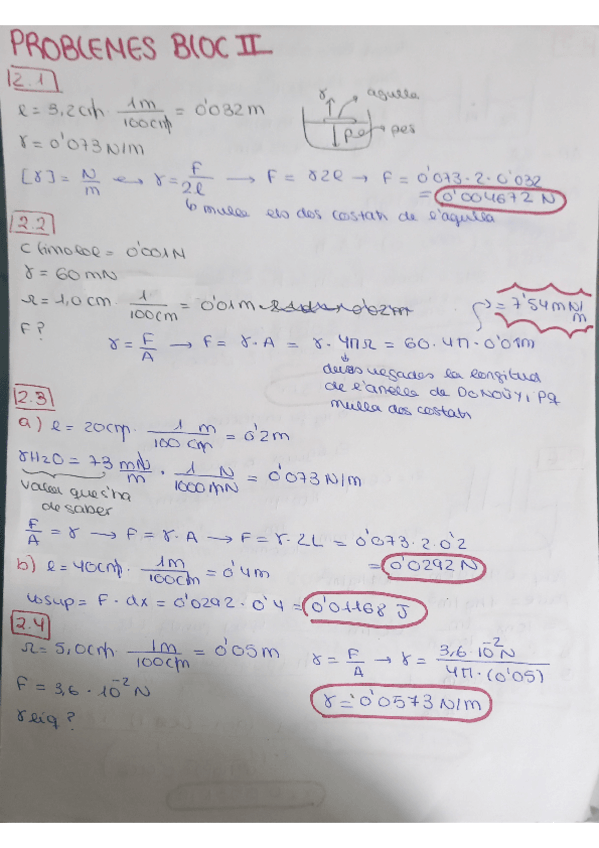 PROBLEMES BLOC II
2.1
l = 3,2cm · 1m/100cm = 0'032m
γ agulla
pes
γ = 0'073 N/m
[γ] = N/m ↔ γ = F/2l → F = γ2l → F = 0'073·2·0'032
= 0'004672 N
mulla els dos costats de l'agulla
2.2
= 0'001N
γ = 60mN
r = 1,0cm · 1/100cm = 0'01m
= 7'54 mN/m
F?
γ = F/A → F = γ·A = γ·4πr = 60·4π·0'01m
dues vegades la longitud
de l'anella de DONOÜY, pq
mulla dos costats
2.3
a) l = 20cm · 1 m/100 cm = 0'2m
γH2O = 73 mN/m · 1 N/1000mN = 0'073 N/m
valor que s'ha
de saber
F/A = γ → F = γ·A → F = γ·2L = 0'073·2·0'2
= 0'0292 N
b) l = 40cm · 1m/100cm = 0'4m
wsup = F·dx = 0'0292·0'4 = 0'01168 J
2.4
r = 5,0cm · 1m/100cm = 0'05m
γ = F/A → γ = 3,6·10⁻²N/4π·(0'05)
F = 3,6·10⁻² N
γ = 0'0573 N/m
γ liq?